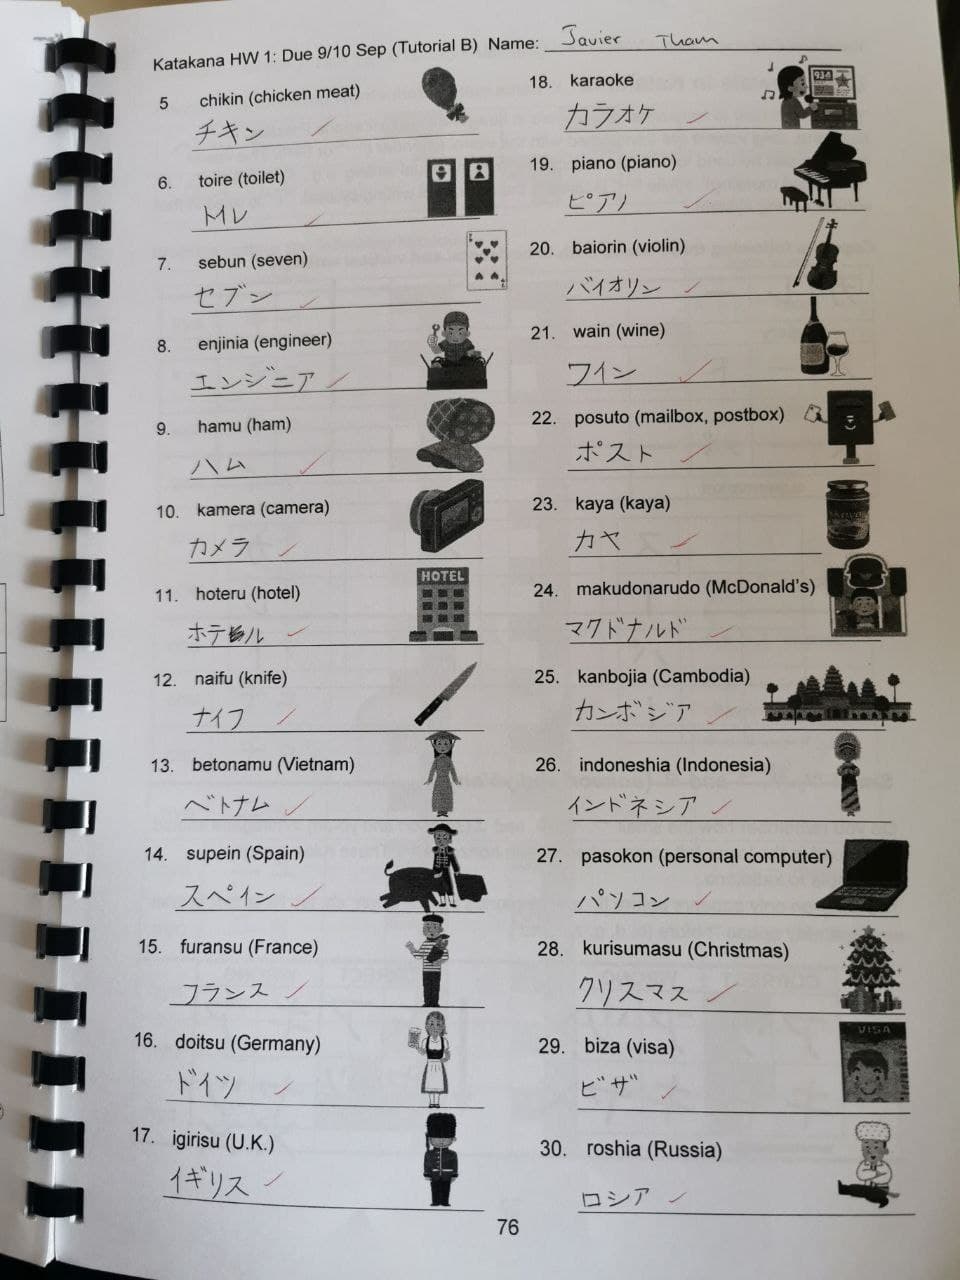 Katakana HW 1: Due 9/10 Sep (Tutorial B) Name: Javier Tham
5 chikin (chicken meat)
チキン
6. toire (toilet)
トイレ
7. sebun (seven)
セブン
8. enjinia (engineer)
エンジニア
9. hamu (ham)
ハム
10. kamera (camera)
カメラ
11. hoteru (hotel)
ホテル
HOTEL
12. naifu (knife)
ナイフ
13. betonamu (Vietnam)
ベトナム
14. supein (Spain)
スペイン
15. furansu (France)
フランス
16. doitsu (Germany)
ドイツ
17. igirisu (U.K.)
イギリス
18. karaoke
カラオケ
934
19. piano (piano)
ピアノ
20. baiorin (violin)
バイオリン
21. wain (wine)
ワイン
22. posuto (mailbox, postbox)
ポスト
23. kaya (kaya)
カヤ
24. makudonarudo (McDonald's)
マクドナルド
25. kanbojia (Cambodia)
カンボジア
26. indoneshia (Indonesia)
インドネシア
27. pasokon (personal computer)
パソコン
28. kurisumasu (Christmas)
クリスマス
29. biza (visa)
ビザ
VISA
30. roshia (Russia)
ロシア
76